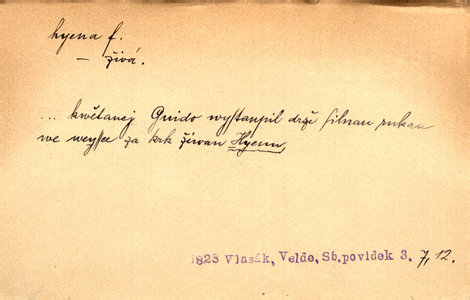 hyena f.
— živá.
... kwětanej Guido wystaupil drže silnau rukau
we weyssce za krk žiwau Hyenu,
1825 Vlasák, Velde, Sb.povídek 3. 7, 12.